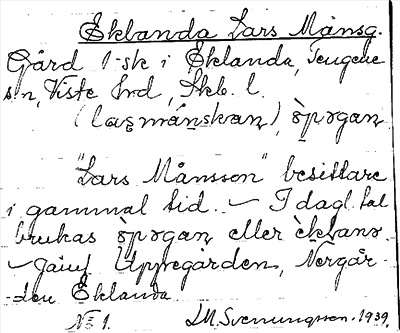 Eklanda Lars Månsg.
Gård 1/sk i Eklanda, Tengene
sn, Viste hrd, Skb. l.
(laʂmánskan), òpǝgan
"Lars Månsson" besittare
i gammal tid. — I dagl. tal
brukas òpǝgan eller èklana.
— Jämf Uppegården, Nergår-
den Eklanda.
No 1. J.M. Svenungsson. 1939.